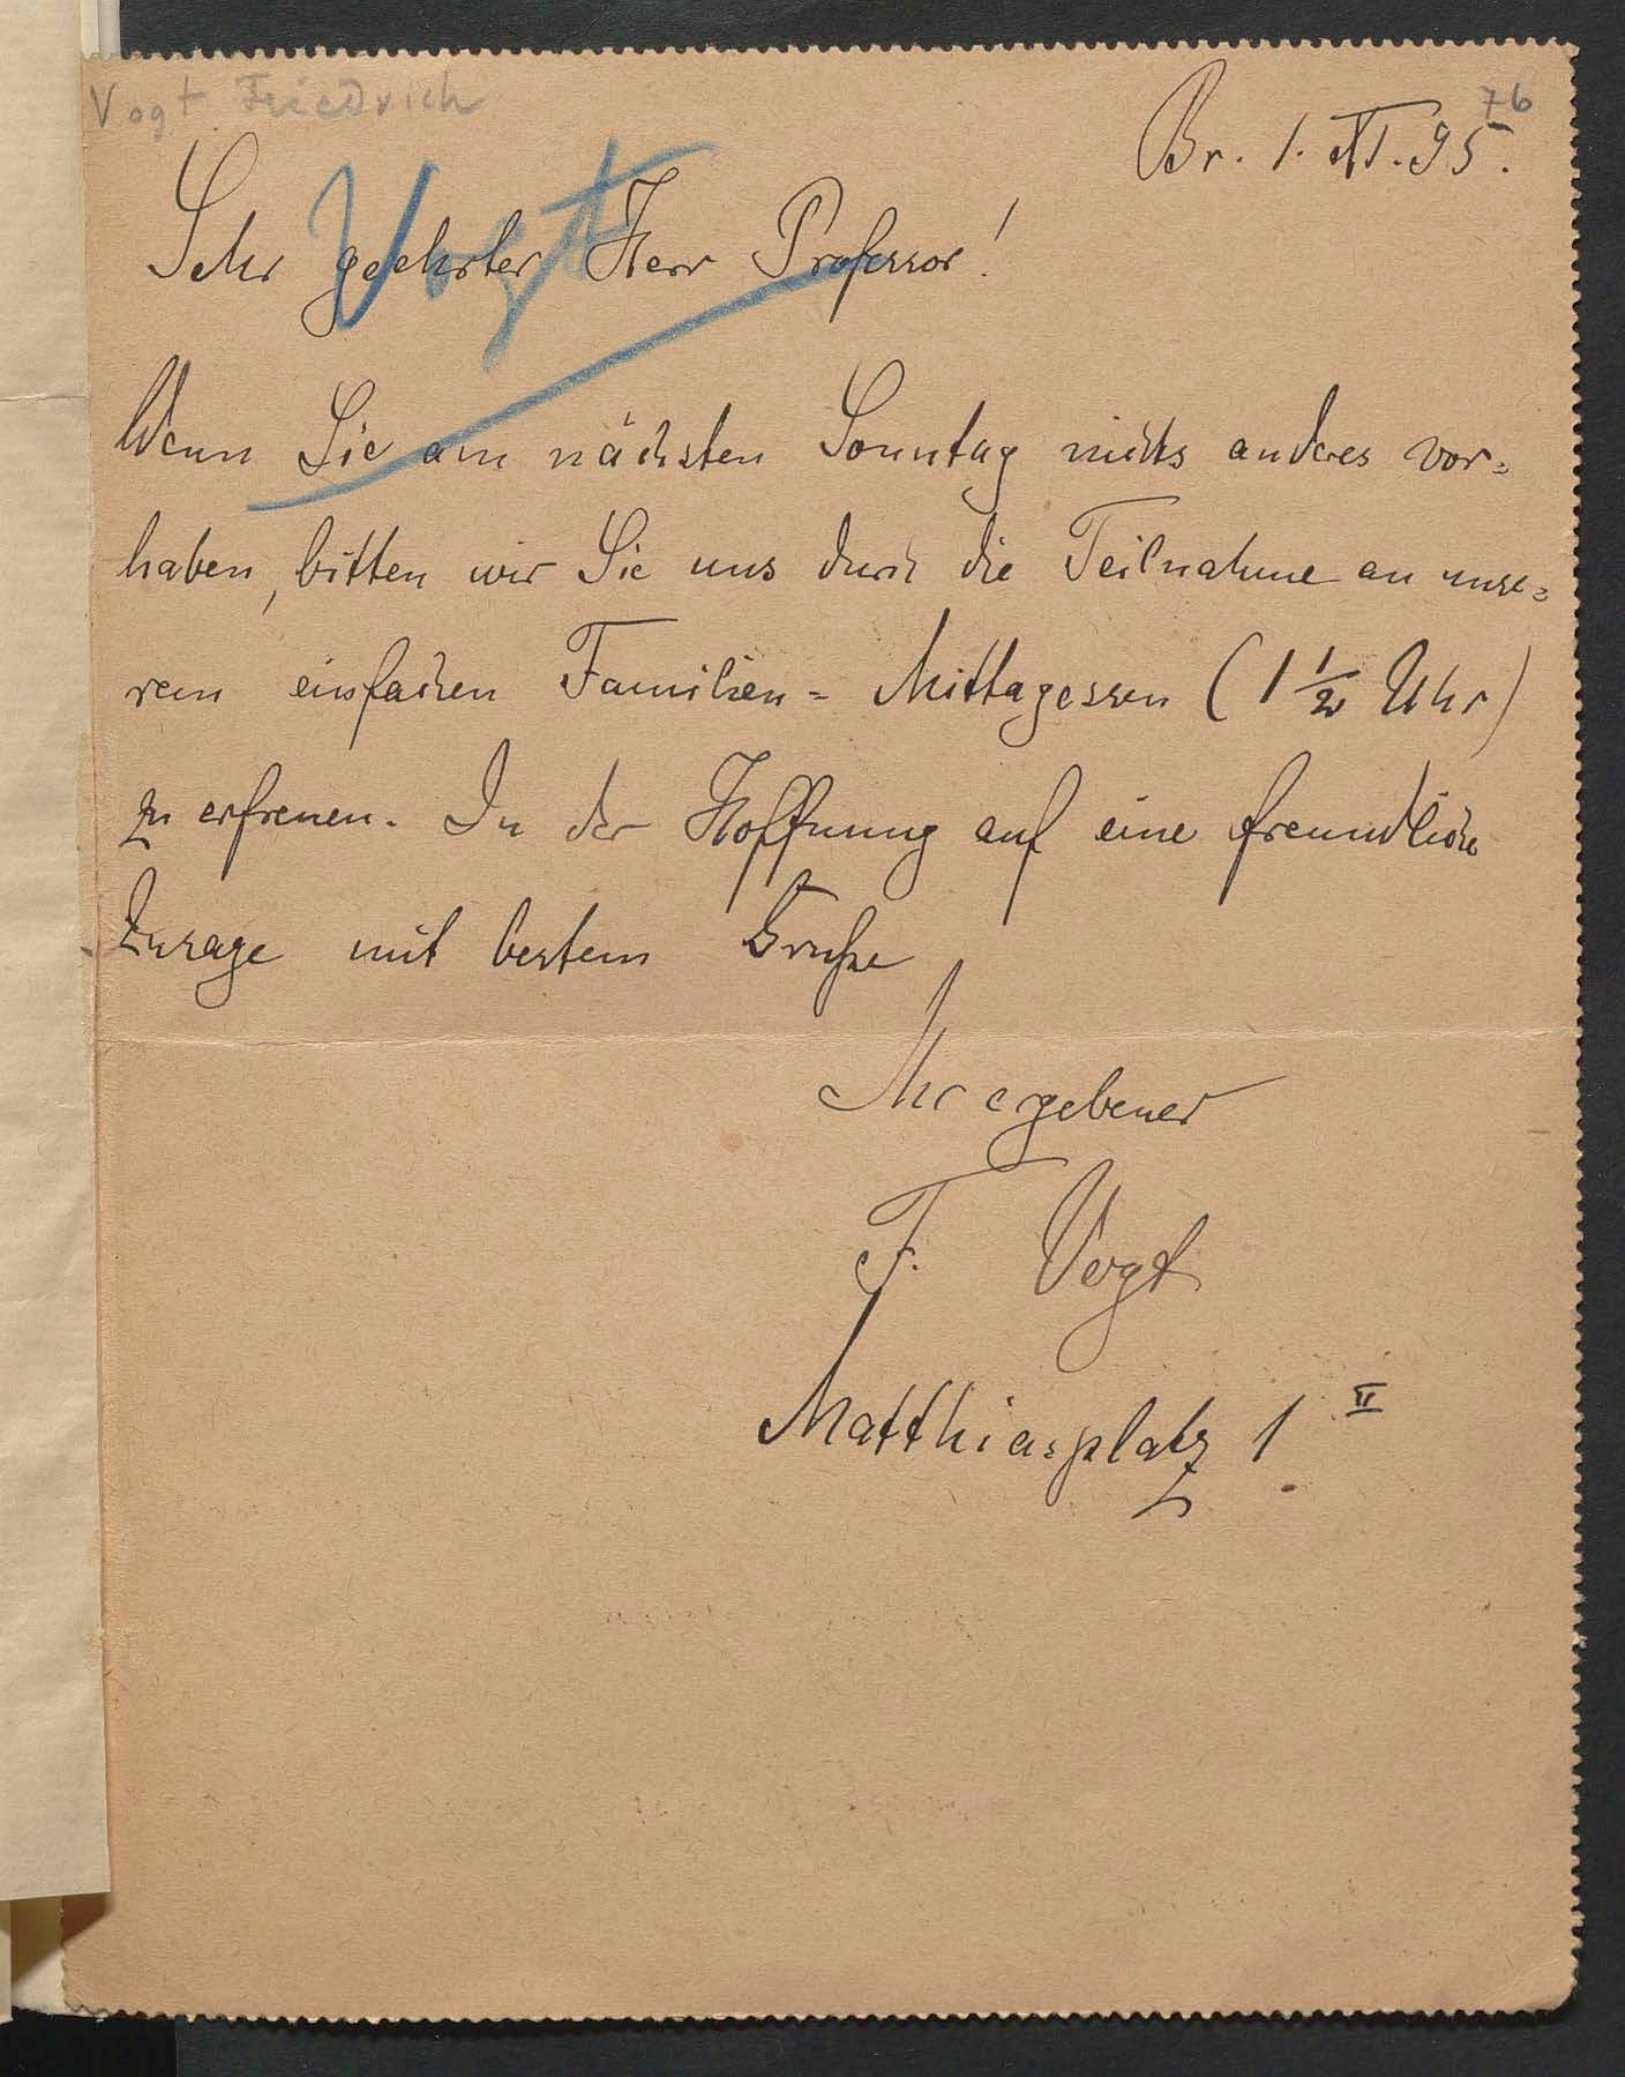 Vogt Friedrich
76
Br. 1. XI. 95.
Vogt
Sehr geehrter Herr Professor!
Wenn Sie am nächsten Sonntag nichts anderes vor=
haben, bitten wir Sie uns durch die Teilnahme an unse=
rem einfachen Familien= Mittagessen (1 1/2 Uhr)
zu erfreuen. In der Hoffnung auf eine freundliche
Zusage mit bestem Gruße
Ihr ergebener
F. Vogt
Matthiasplatz 1 II